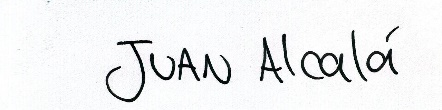 JUAN Alcalá